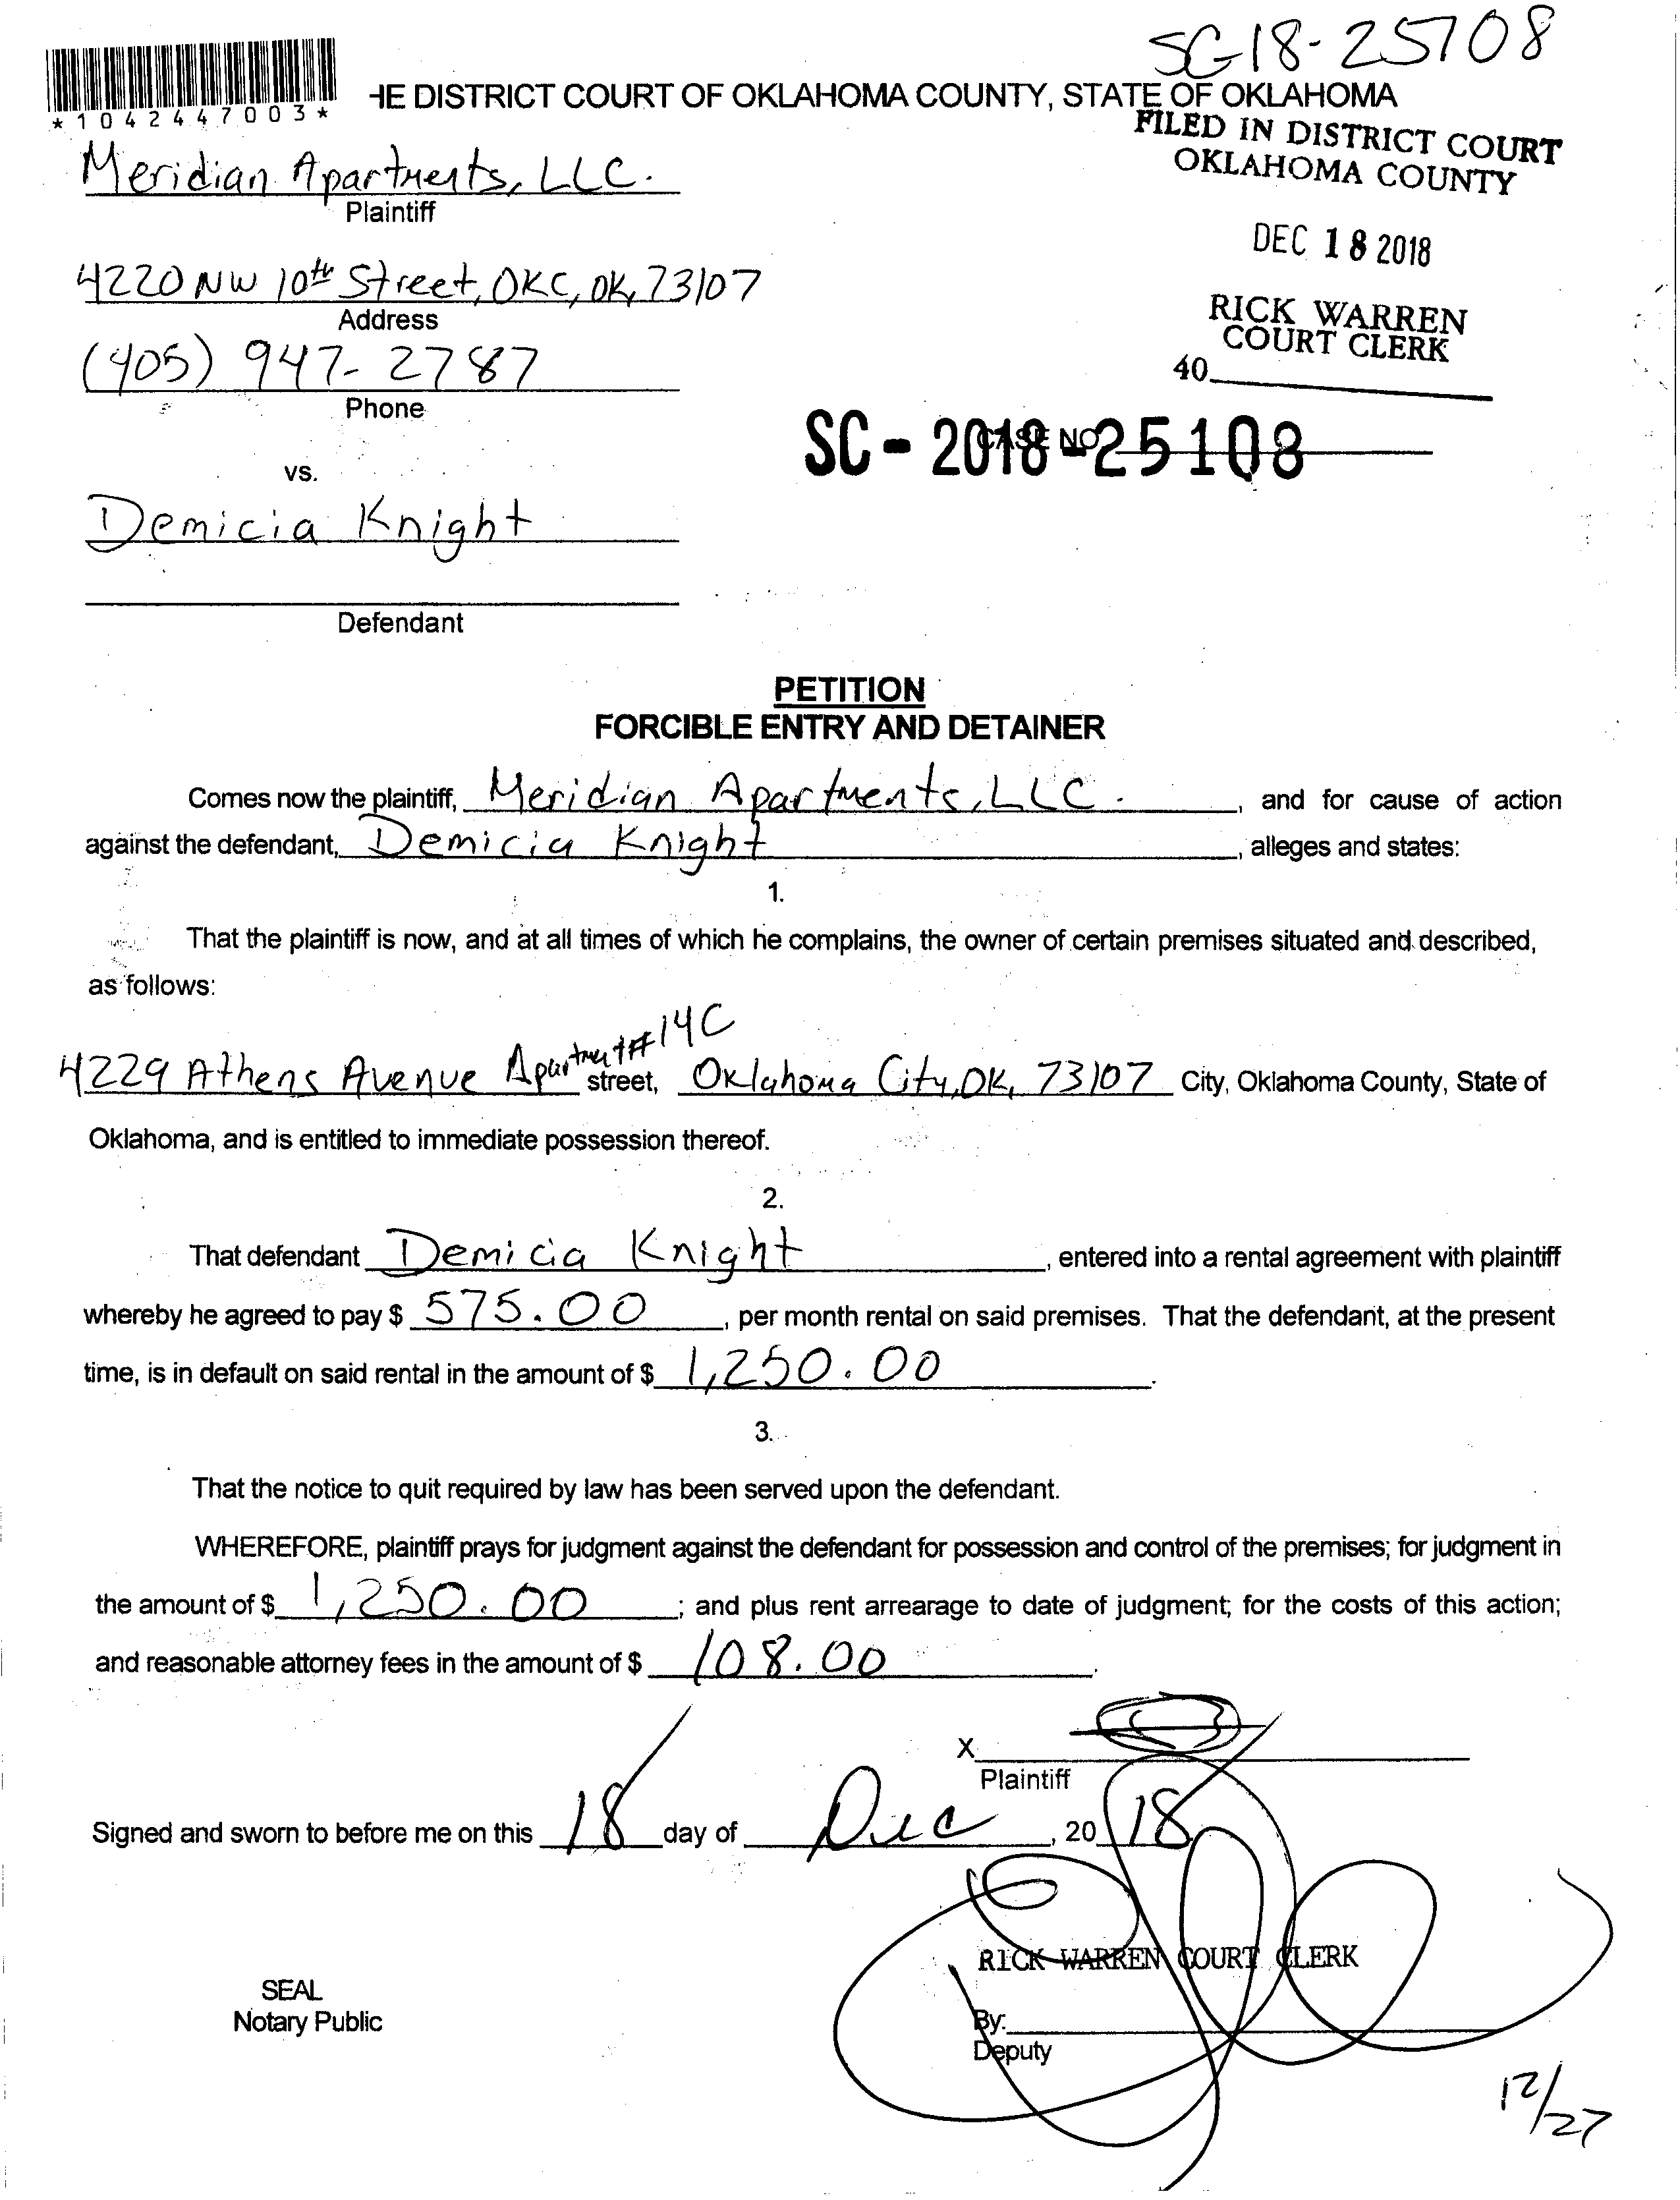 SC-18-25108
*1042447003*
HE DISTRICT COURT OF OKLAHOMA COUNTY, STATE OF OKLAHOMA
FILED IN DISTRICT COURT
OKLAHOMA COUNTY
Meridian Apartments, LLC.
Plaintiff
DEC 18 2018
4220 NW 10th Street, OKC, OK, 73107
Address
RICK WARREN
COURT CLERK
40
(405) 947-2787
Phone
CASE NO.
SC - 2018 - 25108
vs.
Demicia Knight
Defendant
PETITION
FORCIBLE ENTRY AND DETAINER
Comes now the plaintiff, Meridian Apartments, LLC., and for cause of action
against the defendant, Demicia Knight, alleges and states:
1.
That the plaintiff is now, and at all times of which he complains, the owner of certain premises situated and described,
as follows:
4229 Athens Avenue Apartment #14C street, Oklahoma City, OK, 73107 City, Oklahoma County, State of
Oklahoma, and is entitled to immediate possession thereof.
2.
That defendant Demicia Knight, entered into a rental agreement with plaintiff
whereby he agreed to pay $ 575.00, per month rental on said premises. That the defendant, at the present
time, is in default on said rental in the amount of $ 1,250.00.
3.
That the notice to quit required by law has been served upon the defendant.
WHEREFORE, plaintiff prays for judgment against the defendant for possession and control of the premises; for judgment in
the amount of $ 1,250.00; and plus rent arrearage to date of judgment; for the costs of this action;
and reasonable attorney fees in the amount of $ 108.00.
X
Plaintiff
Signed and sworn to before me on this 18 day of Dec, 2018
RICK WARREN COURT CLERK
SEAL
Notary Public
By:
Deputy
12/27